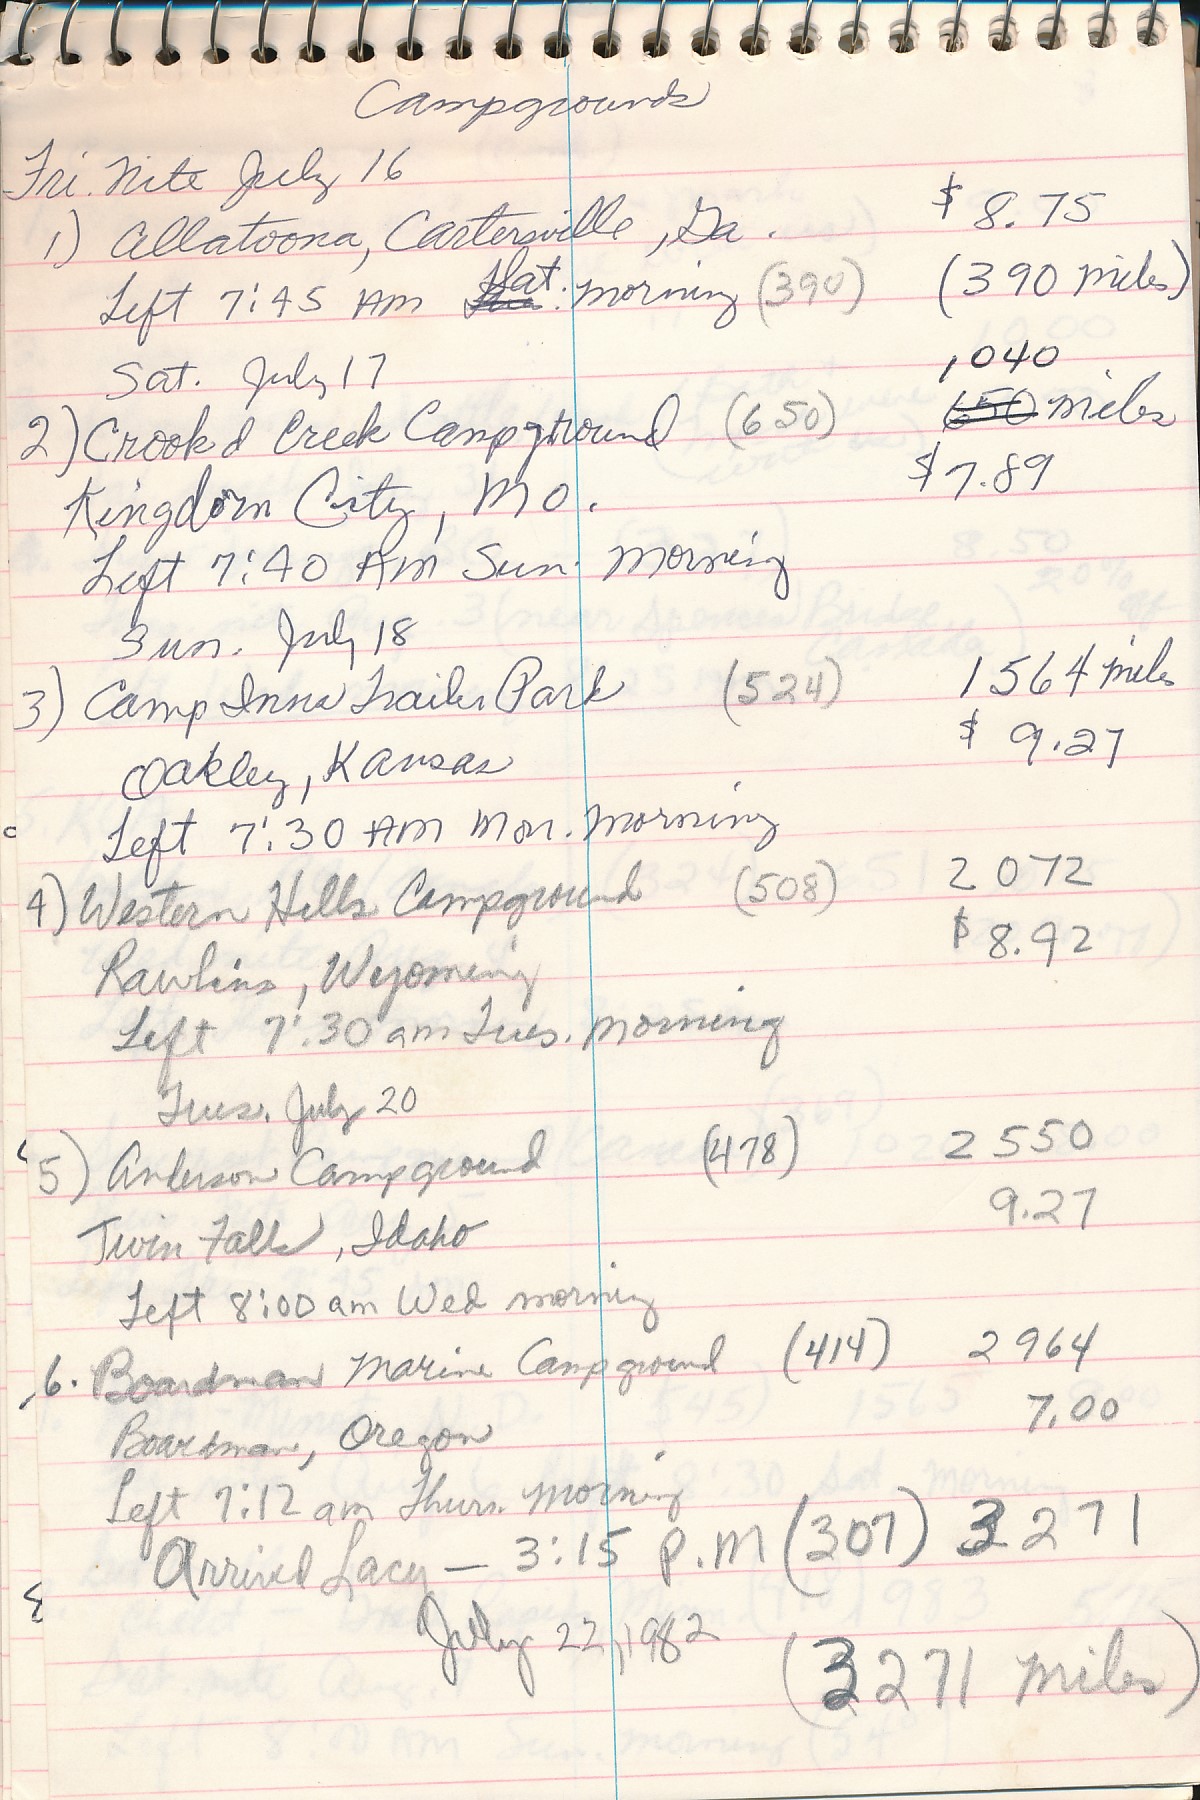 Campgrounds
Fri. Nite July 16
1) Allatoona, Cartersville, Ga. $8.75
Left 7:45 AM Sat. morning (390) (390 miles)
Sat. July 17 1,040
2) Crook d Creek Campground (650) 650 miles
Kingdom City, Mo. $7.89
Left 7:40 AM Sun. morning
Sun. July 18
3) Camp Inn Trailer Park (524) 1564 miles
Oakley, Kansas $ 9.27
Left 7:30 AM Mon. morning
4) Western Hills Campground (508) 2072
Rawlins, Wyoming $8.92
Left 7:30 am Tues. morning
Tues. July 20
5) Anderson Campground (478) 2550
Twin Falls, Idaho 9.27
Left 8:00 am Wed morning
6. Boardman Marine Campground (414) 2964
Boardman, Oregon 7.00
Left 7:12 am Thurs. morning
Arrived Lacy — 3:15 P.M (307) 3271
July 22, 1982
(3271 miles)